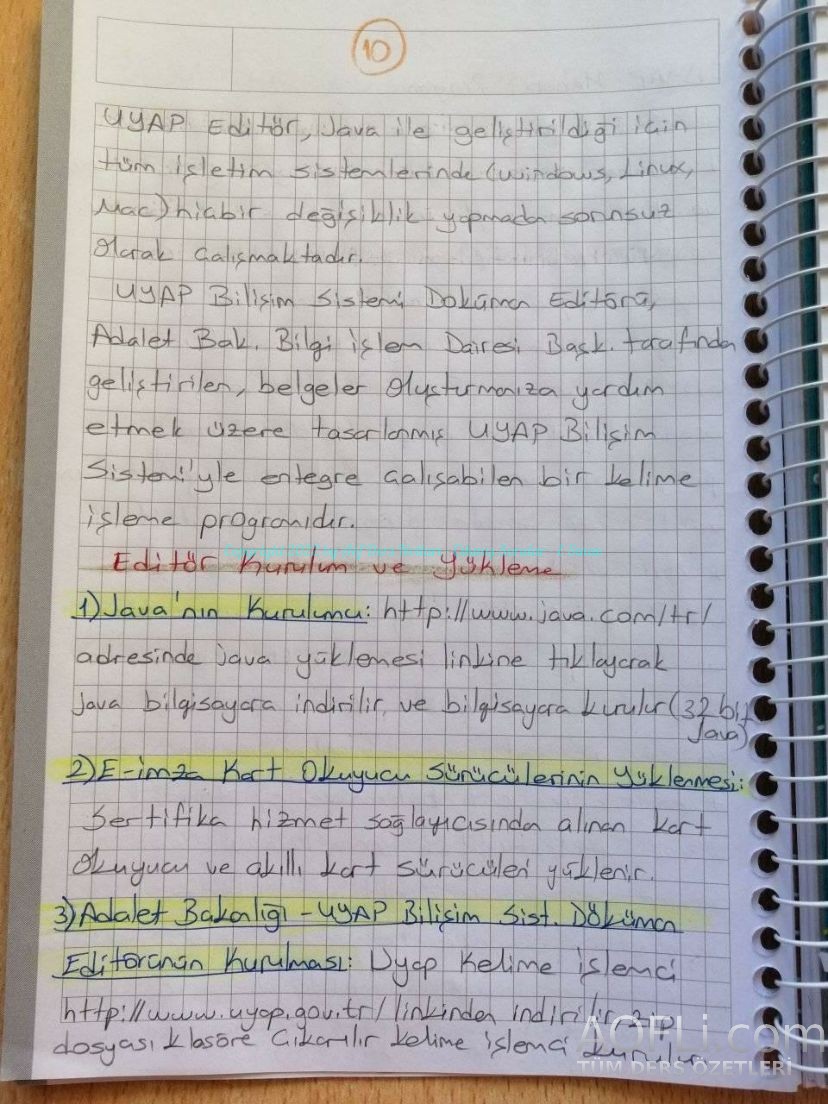 10
UYAP Editör, Java ile geliştirildiği için
tüm işletim sistemlerinde (Windows, Linux,
Mac) hiçbir değişiklik yapmadan sorunsuz
olarak çalışmaktadır.
UYAP Bilişim Sistemi Doküman Editörü,
Adalet Bak. Bilgi İşlem Dairesi Başk. tarafından
geliştirilen, belgeler oluşturmanıza yardım
etmek üzere tasarlanmış UYAP Bilişim
Sistemi'yle entegre çalışabilen bir kelime
işleme programıdır.
Editör Kurulum ve Yükleme
1) Java'nın Kurulumu: http://www.java.com/tr/
adresinde java yüklemesi linkine tıklayarak
java bilgisayara indirilir ve bilgisayara kurulur (32 bit
Java)
2) E-imza Kart Okuyucu Sürücülerinin Yüklenmesi:
Sertifika hizmet sağlayıcısından alınan kart
okuyucu ve akıllı kart sürücüleri yüklenir.
3) Adalet Bakanlığı - UYAP Bilişim Sist. Döküman
Editörünün Kurulması: Uyap Kelime işlemci
http://www.uyap.gov.tr/ linkinden indirilir zip
dosyası klasöre çıkarılır kelime işlemci kurulur.
AOFLi.com
TÜM DERS ÖZETLERİ